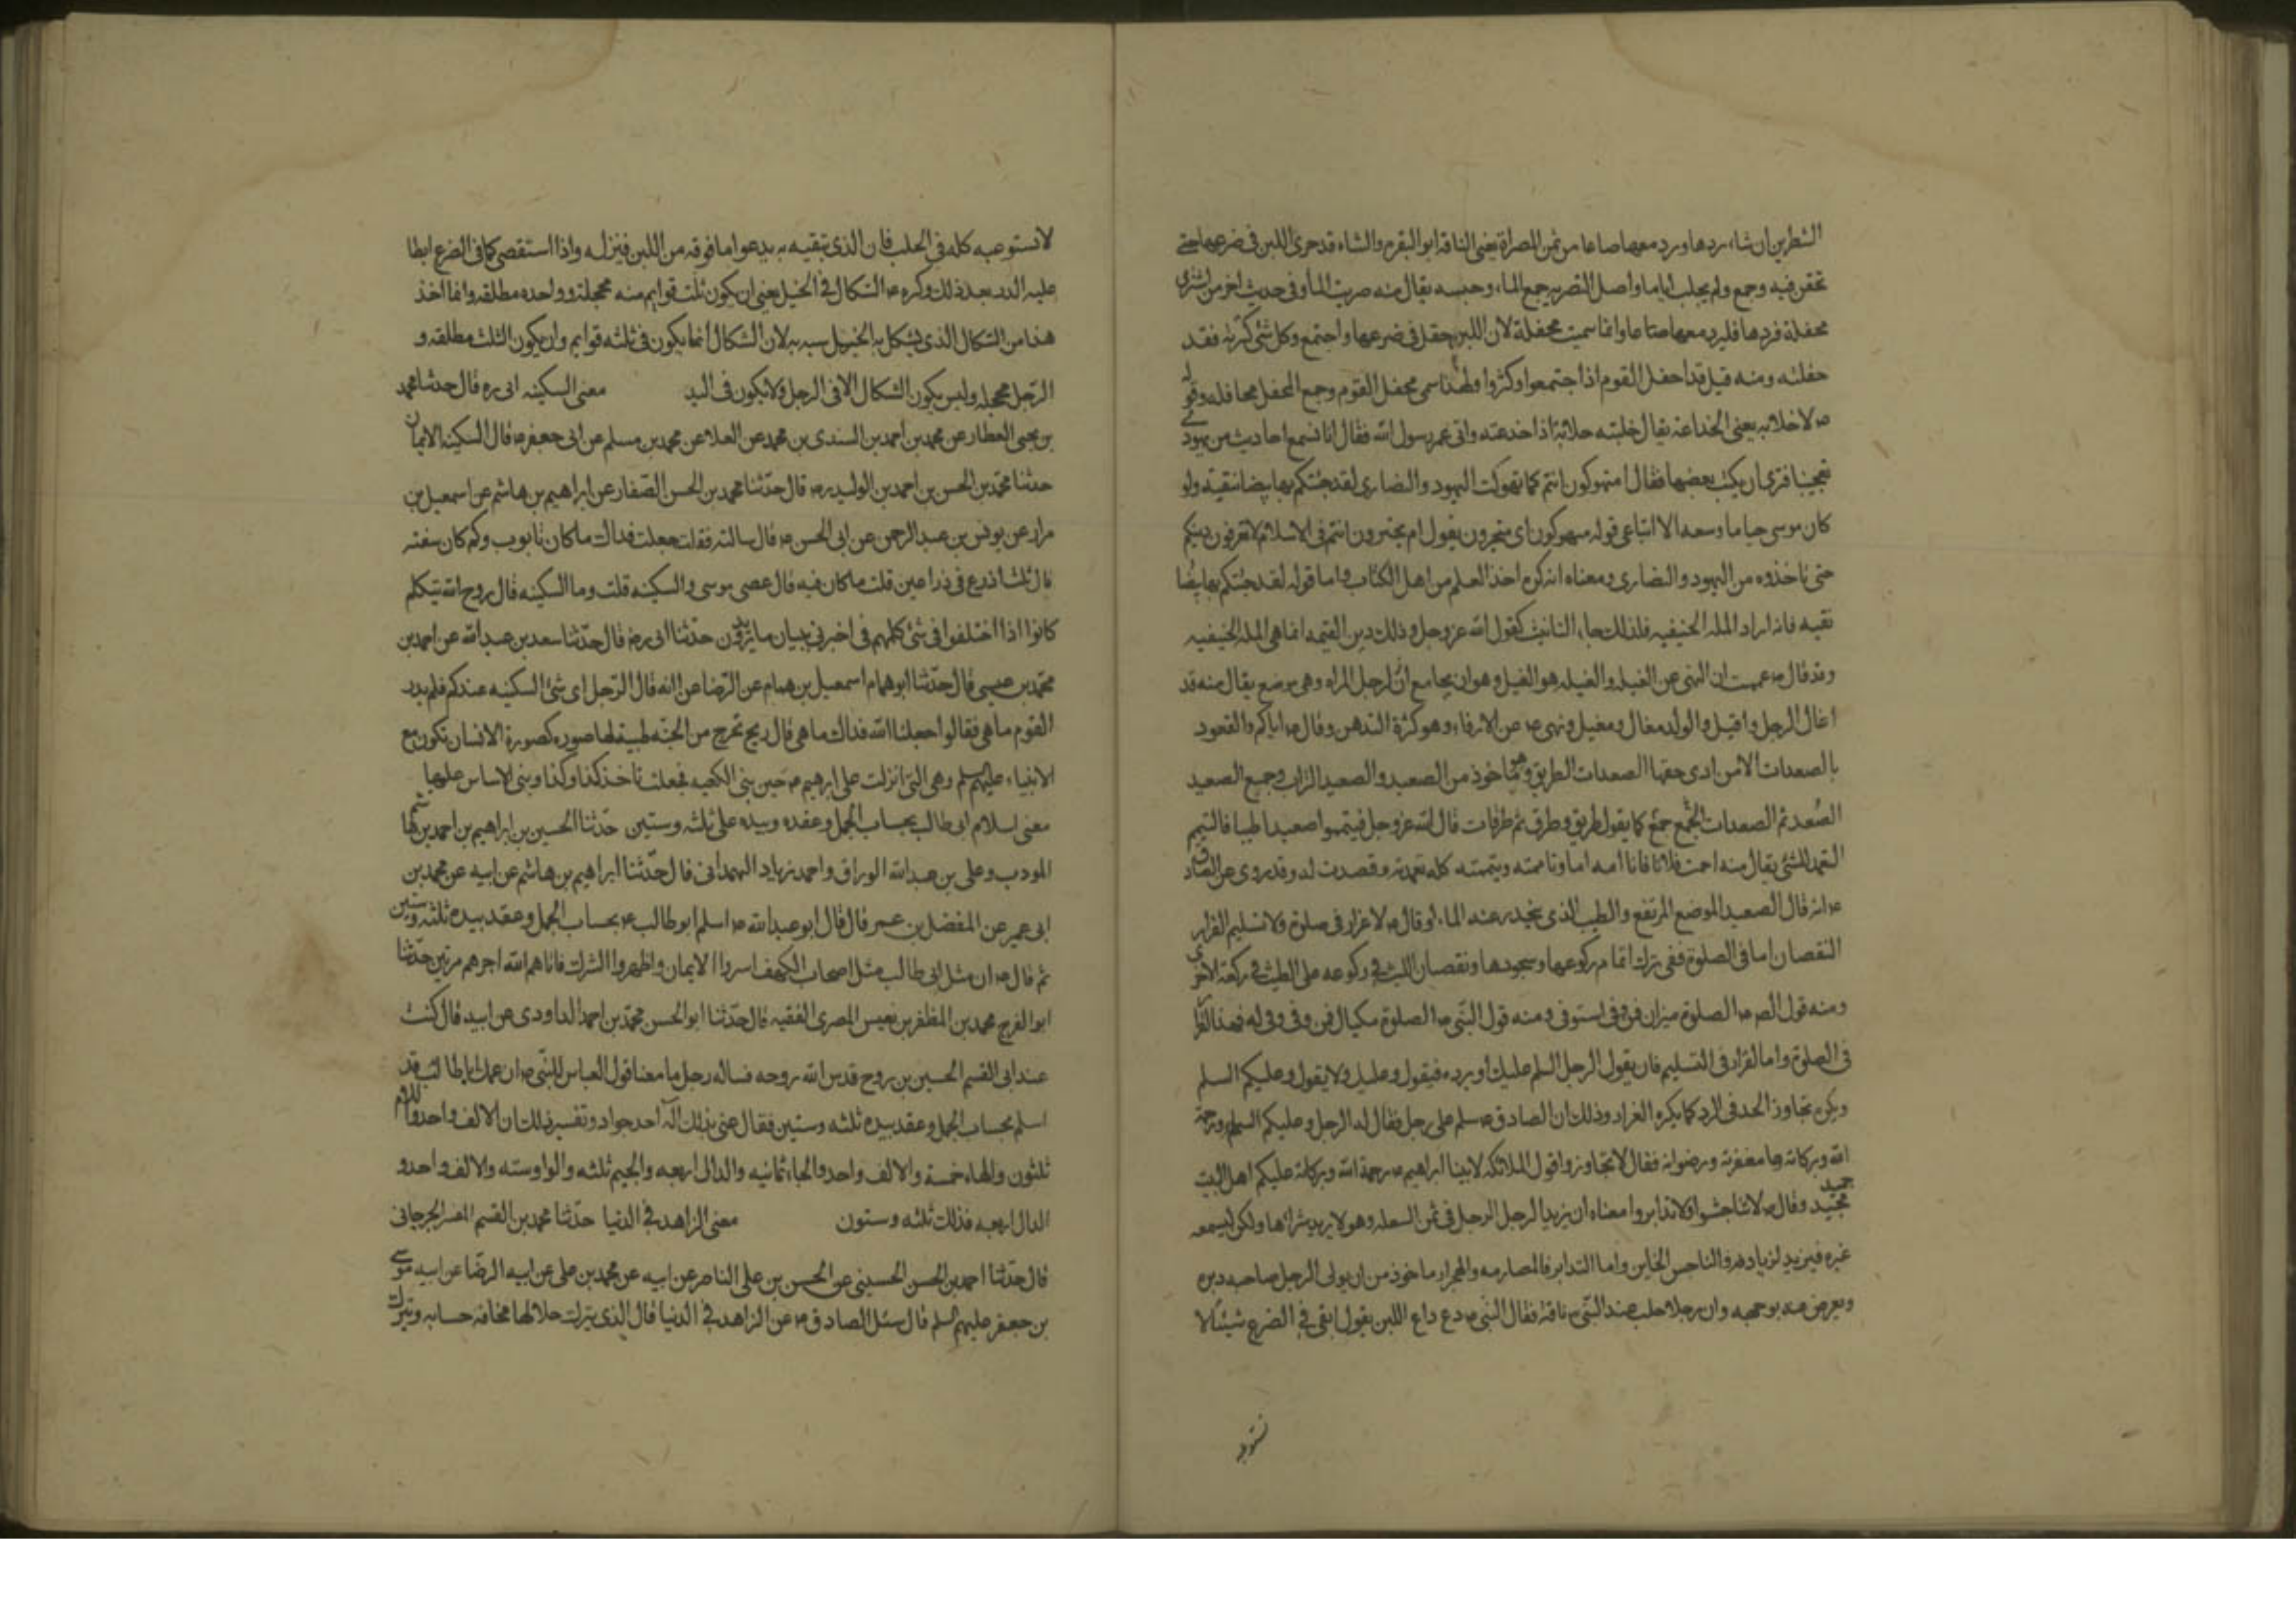 النظرين ان شاء ردها ورد معها صاعا من تمر المصراة يعنى الناقة او البقره والشاه قد صرى اللبن فى ضرعها حتى
تحقن فيه وجمع ولم يحلب اياما واصل التصريه جمع الماء وحبسه يقال منه صريت الماء وفى حديث اخر من اشترى
محفلة فردها فليرد معها صاعا وانما سميت محفلة لان اللبن حفل فى ضرعها واجتمع وكل شئ كثرته فقد
حفلته ومنه قيل قد احفل القوم اذا اجتمعوا وكثروا ولهذا سمى محفل القوم وجمع المحفل محافل وقوله
لا خلابه يعنى الخداعة يقال خلبته خلابة اذا خدعته واتى عمر رسول الله فقال انا نسمع احاديث من يهود
تعجبنا فترى ان نكتب بعضها فقال امتهوكون انتم كما تهوكت اليهود والنصارى لقد جئتكم بها بيضا نقية ولو
كان موسى حيا ما وسعه الا اتباعى قوله متهوكون اى متحيرون يقول ام متحيرون انتم فى الاسلام لا تعرفون دينكم
حتى تاخذوه من اليهود والنصارى ومعناه انه كره اخذ العلم من اهل الكتاب واما قوله لقد جئتكم بها بيضا
نقيه فانه اراد المله الحنيفيه فلذلك جاء التانيث كقول الله عز وجل وذلك دين القيمه انما هى المله الحنيفيه
وقد قال هممت ان انهى عن الغيله والغيله هو الغيل وهو ان يجامع الرجل المراه وهى مرضع يقال منه قد
اغال الرجل واغيل والولد مغال ومغيل ونهى عن الارفاء وهو كثرة التدهن وقال اياكم والقعود
بالصعدات الا من ادى حقها الصعدات الطريق وهو ماخوذ من الصعيد والصعيد التراب وجمع الصعيد
الصعد ثم الصعدات جمع الجمع كما يقول طريق وطرق ثم طرقات قال الله عز وجل فتيمموا صعيدا طيبا فالتيمم
التعمد للشئ يقال منه اممت فلانا فانا اؤمه اما وتاممته وتيممته كله تعمدته وقصدت له وقد روى عن الصادق
انه قال الصعيد الموضع المرتفع والطيب الذى ينحدر عنه الماء وقال لا غرار فى صلوة ولا تسليم الغرار
النقصان اما فى الصلوة ففى ترك اتمام ركوعها وسجودها ونقصان اللبث فى ركوعه على اللبث فى ركعة الاخرى
ومنه قول الصادق الصلوة ميزان فمن وفى استوفى ومنه قول النبى الصلوة مكيال فمن وفى وفى له فهذا الغرار
فى الصلوة واما الغرار فى التسليم فان يقول الرجل السلم عليك او يرده فيقول وعليك ولا يقول وعليكم السلم
ويكره تجاوز الحد فى الرد كما يكره الغرار وذلك ان الصادق سلم على رجل فقال له الرجل وعليكم السلم ورحمة
الله وبركاته ومغفرته ورضوانه فقال لا تجاوزوا قول الملائكه لابينا ابراهيم رحمة الله وبركاته عليكم اهل البيت
حميد مجيد وقال لا تناجشوا ولا تدابروا معناه ان يزيد الرجل الرجل فى ثمن السلعه وهو لا يريد شراءها ولكن ليسمعه
غيره فيزيد لزيادته والناجش الخاين واما التدابر فالمصارمه والهجران ماخوذ من ان يولى الرجل صاحبه دبره
ويعرض عنه بوجهه وان رجلا حلب عند النبى ناقة فقال النبى دع داع اللبن يقول ابقى فى الضرع شيئا لا
تستوعبه
لا تستوعبه كله فى الحلب فان الذى تبقيه به يدعو ما فوقه من اللبن فينزله واذا استقصى كلما فى الضرع ابطا
عليه الدر بعد ذلك وكره الشكال فى الخيل يعنى ان يكون ثلث قوايم منه محجلة وواحده مطلقه وانما اخذ
هذا من الشكال الذى يشكل به الخيل شبه به لان الشكال انما يكون فى ثلثه قوايم وان يكون الثلث مطلقه و
الرجل محجله وليس يكون الشكال الا فى الرجل ولا يكون فى اليد معنى السكينه ابى ره قال حدثنا محمد
بن يحيى العطار عن محمد بن احمد بن السندى بن محمد عن العلا عن محمد بن مسلم عن ابى جعفر قال السكينه الايمان
حدثنا محمد بن الحسن بن احمد بن الوليد ره قال حدثنا محمد بن الحسن الصفار عن ابراهيم بن هاشم عن اسمعيل بن
مرار عن يونس بن عبد الرحمن عن ابى الحسن قال سالته فقلت جعلت فداك ما كان تابوت وكم كان سعته
قال ثلث اذرع فى ذراعين قلت ما كان فيه قال عصى موسى والسكينه قلت وما السكينه قال روح الله يتكلم
كانوا اذا اختلفوا فى شئ كلمهم فى اخبرنى ببيان ما يريدون حدثنا ابى ره قال حدثنا سعد بن عبد الله عن احمد بن
محمد بن عيسى قال حدثنا ابو همام اسمعيل بن همام عن الرضا انه قال لرجل اى شئ السكينه عندكم فلم يدر
القوم ما هى فقالوا جعلنا الله فداك ما هى قال ريح تخرج من الجنه طيبة لها صوره كصورة الانسان تكون مع
الانبياء عليهم السلم وهى التى انزلت على ابرهيم حين بنى الكعبه فجعلت تاخذ كذا وكذا وبنى الاساس عليها
معنى اسلام ابى طالب بحساب الجمل وعقده بيده على ثلثه وستين حدثنا الحسين بن ابراهيم بن احمد بن هشام
المودب وعلى بن عبد الله الوراق واحمد بن زياد الهمدانى قال حدثنا ابراهيم بن هاشم عن ابيه عن محمد بن
ابى عمير عن المفضل بن عمر قال قال ابو عبد الله اسلم ابو طالب بحساب الجمل وعقد بيده ثلثه وستين
ثم قال ان مثل ابى طالب مثل اصحاب الكهف اسروا الايمان واظهروا الشرك فاتاهم الله اجرهم مرتين حدثنا
ابو الفرج محمد بن المظفر بن نفيس المصرى الفقيه قال حدثنا ابو الحسن محمد بن احمد الداودى عن ابيه قال كنت
عند ابى القسم الحسين بن روح قدس الله روحه فساله رجل ما معنا قول العباس للنبى ان عمك ابا طالب قد
اسلم بحساب الجمل وعقد بيده ثلثه وستين فقال عنى بذلك اله احد جواد وتفسير ذلك ان الالف واحد واللام
ثلثون والهاء خمسة والالف واحد والحاء ثمانيه والدال اربعه والجيم ثلثه والواو سته والالف واحد و
الدال اربعه فذلك ثلثه وستون معنى الزاهد فى الدنيا حدثنا محمد بن القسم المفسر الجرجانى
قال حدثنا احمد بن الحسن الحسينى عن الحسن بن على الناصر عن ابيه عن محمد بن على عن ابيه الرضا عن ابيه موسى
بن جعفر عليهم السلم قال سئل الصادق عن الزاهد فى الدنيا قال الذى يترك حلالها مخافه حسابه ويترك